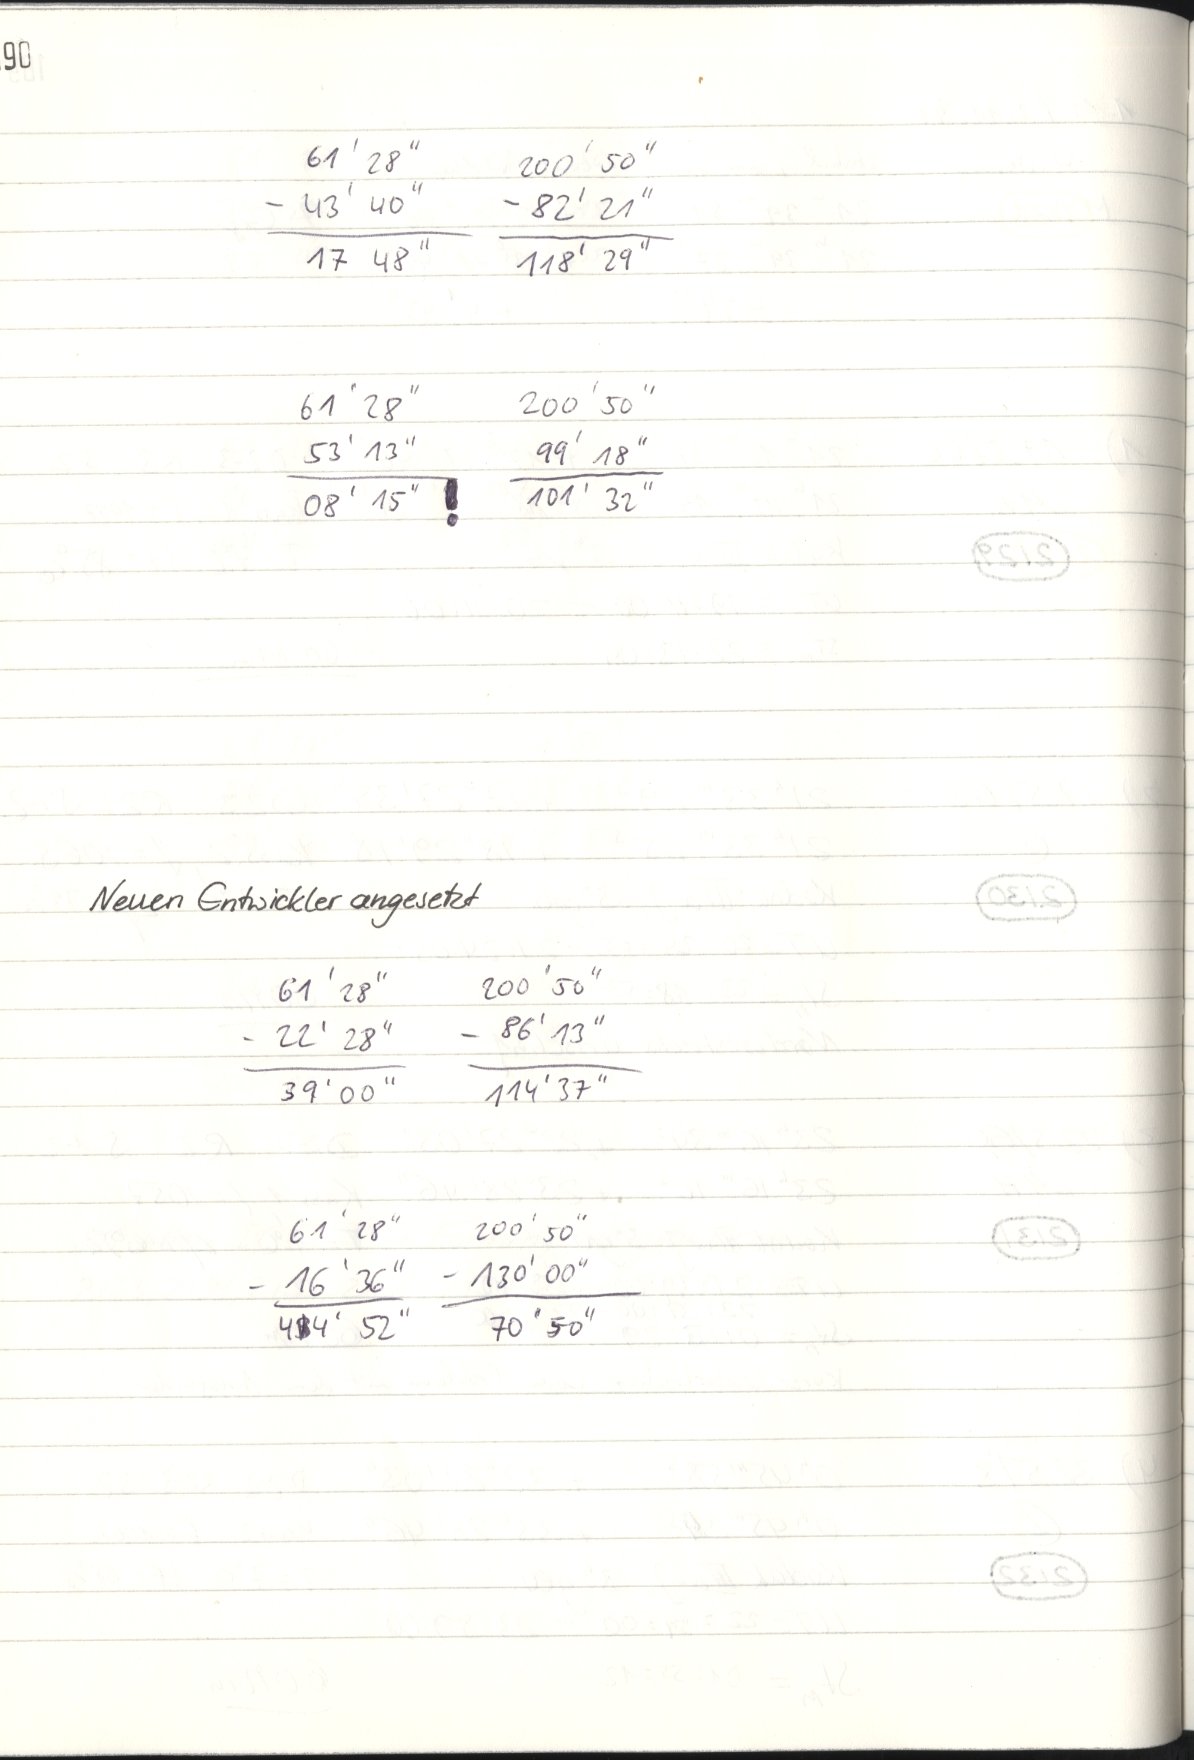 190
61' 28" 200' 50"
- 43' 40" - 82' 21"
17 48" 118' 29"
61' 28" 200' 50"
53' 13" 99' 18"
08' 15" ! 101' 32"
Neuen Entwickler angesetzt
61' 28" 200' 50"
- 22' 28" - 86' 13"
39' 00" 114' 37"
61' 28" 200' 50"
- 16' 36" - 130' 00"
44' 52" 70' 50"